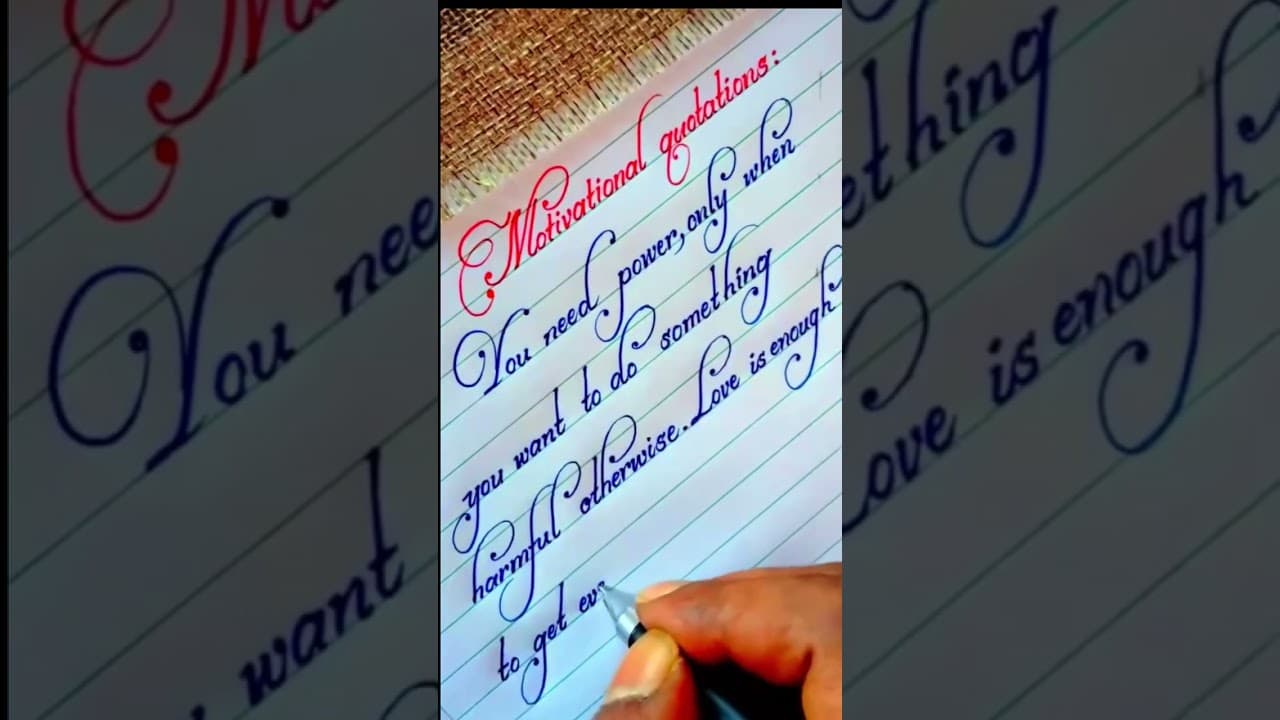 Motivational quotations:
You need power, only when
you want to do something
harmful otherwise. Love is enough
to get eve